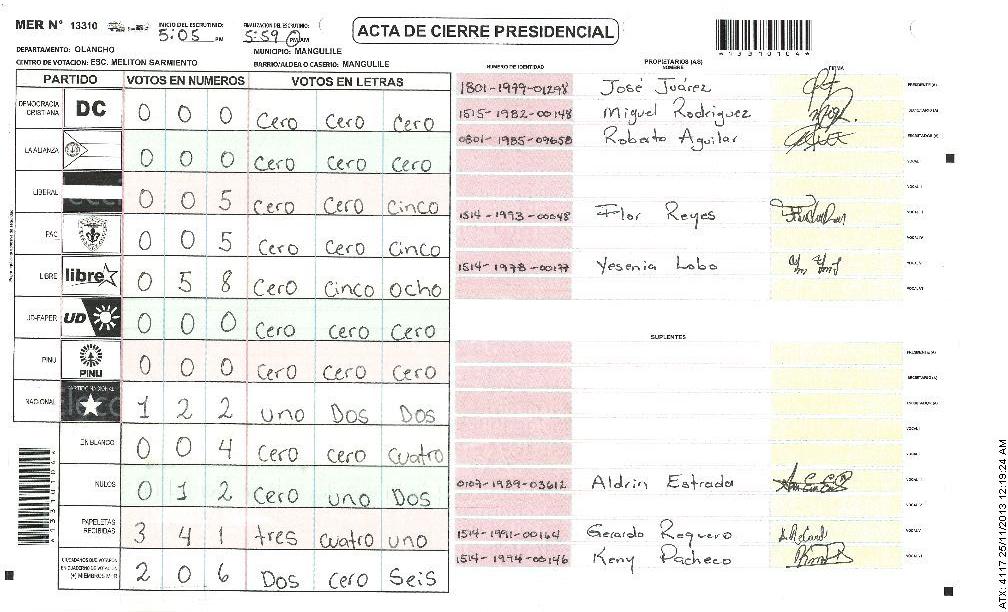 MER N° 13310 INICIO DEL ESCRUTINIO: 5:05 PM FINALIZACION DEL ESCRUTINIO: 5:59 PM/AM
ACTA DE CIERRE PRESIDENCIAL
A133101044
DEPARTAMENTO: OLANCHO MUNICIPIO: MANGULILE
CENTRO DE VOTACION: ESC. MELITON SARMIENTO BARRIO/ALDEA O CASERIO: MANGULILE
PARTIDO VOTOS EN NUMEROS VOTOS EN LETRAS
DEMOCRACIA CRISTIANA DC 0 0 0 Cero Cero Cero
LA ALIANZA 0 0 0 Cero Cero Cero
LIBERAL 0 0 5 Cero Cero Cinco
PAC 0 0 5 Cero Cero Cinco
LIBRE libre 0 5 8 Cero Cinco ocho
UD-FAPER UD 0 0 0 Cero cero Cero
PINU PINU 0 0 0 Cero Cero Cero
NACIONAL PARTIDO NACIONAL 1 2 2 uno Dos Dos
EN BLANCO 0 0 4 Cero cero cuatro
NULOS 0 1 2 Cero uno Dos
PAPELETAS RECIBIDAS 3 4 1 tres cuatro uno
CIUDADANOS QUE VOTARON EN CUADERNO DE VOTACION (+) MIEMBROS MER 2 0 6 Dos cero Seis
NÚMERO DE IDENTIDAD PROPIETARIOS (AS) NOMBRE FIRMA
1801-1979-01298 José Juárez PRESIDENTE(A)
1515-1982-00148 Miguel Rodriguez SECRETARIO(A)
0801-1985-09658 Roberto Aguilar ESCRUTADOR(A)
VOCAL I
VOCAL II
1514-1993-00048 Flor Reyes VOCAL III
VOCAL IV
1514-1978-00177 Yesenia Lobo VOCAL V
VOCAL VI
SUPLENTES
PRESIDENTE(A)
SECRETARIO(A)
ESCRUTADOR(A)
VOCAL I
VOCAL II
0107-1989-03612 Aldrin Estrada VOCAL III
VOCAL IV
1514-1991-00164 Gerardo Requero VOCAL V
1514-1994-00146 Keny Pacheco VOCAL VI
A133101044
ATX: 4117 25/11/2013 12:19:24 AM